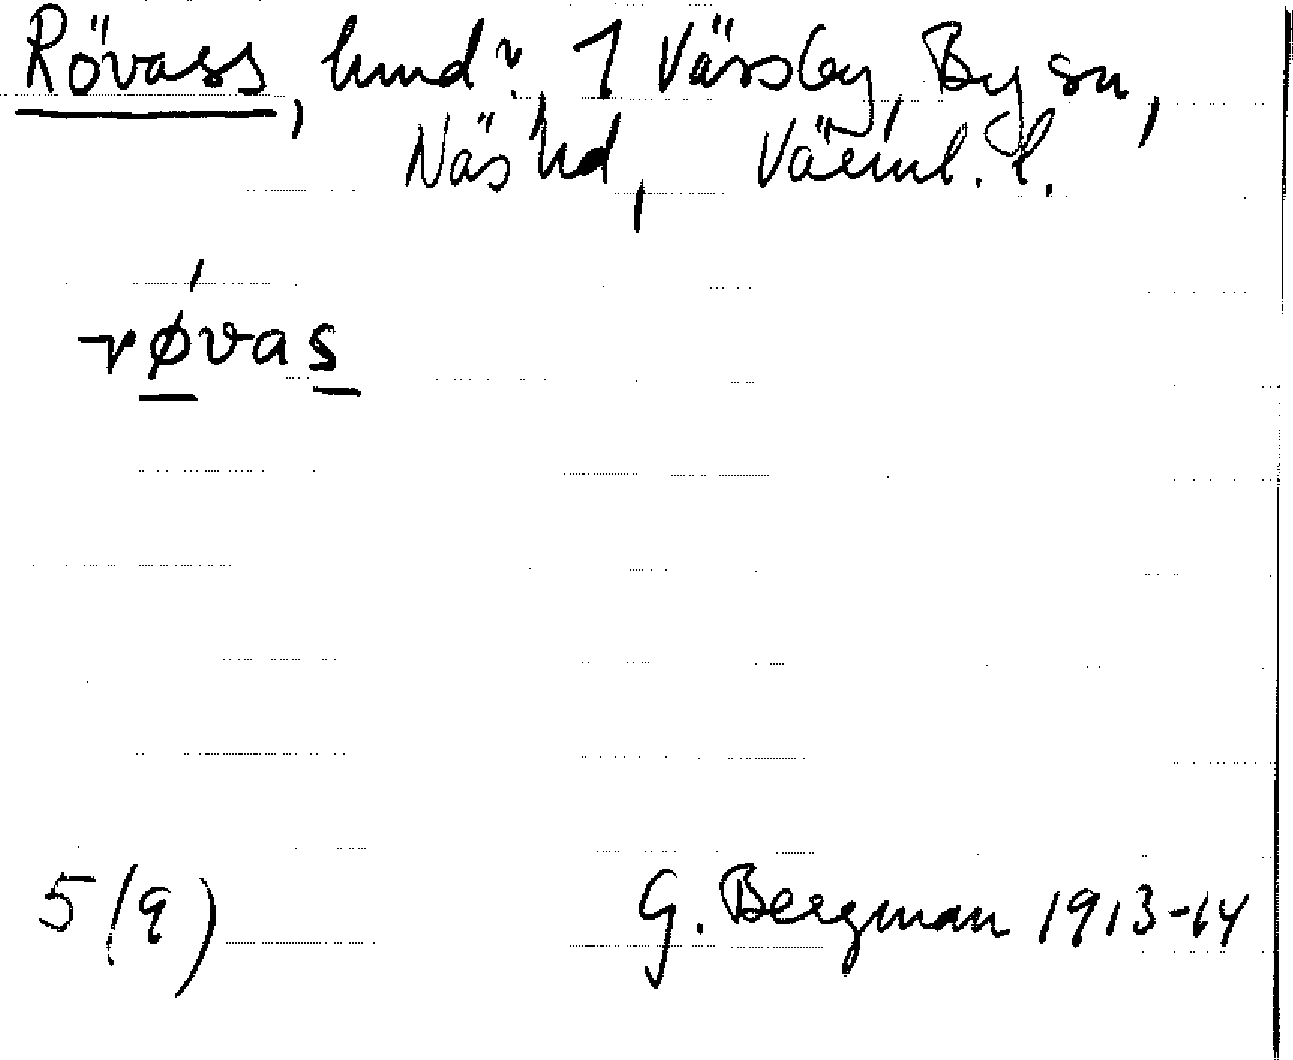 Rövass, hmd? 1 Värsby, By sn,
Näs hd, Värml. l.
røvas
5 (9) G. Bergman 1913-14